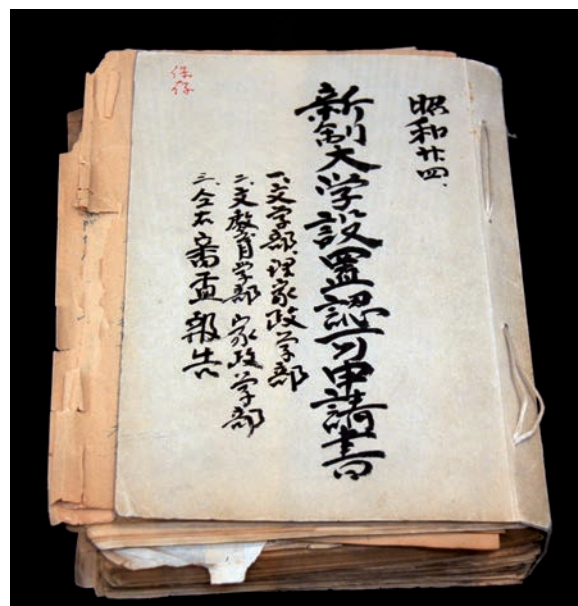 昭和廿四、
新制大学設置認可申請書
一、文学部、理家政学部
二、文教育学部 家政学部
三、仝右審査報告
保存